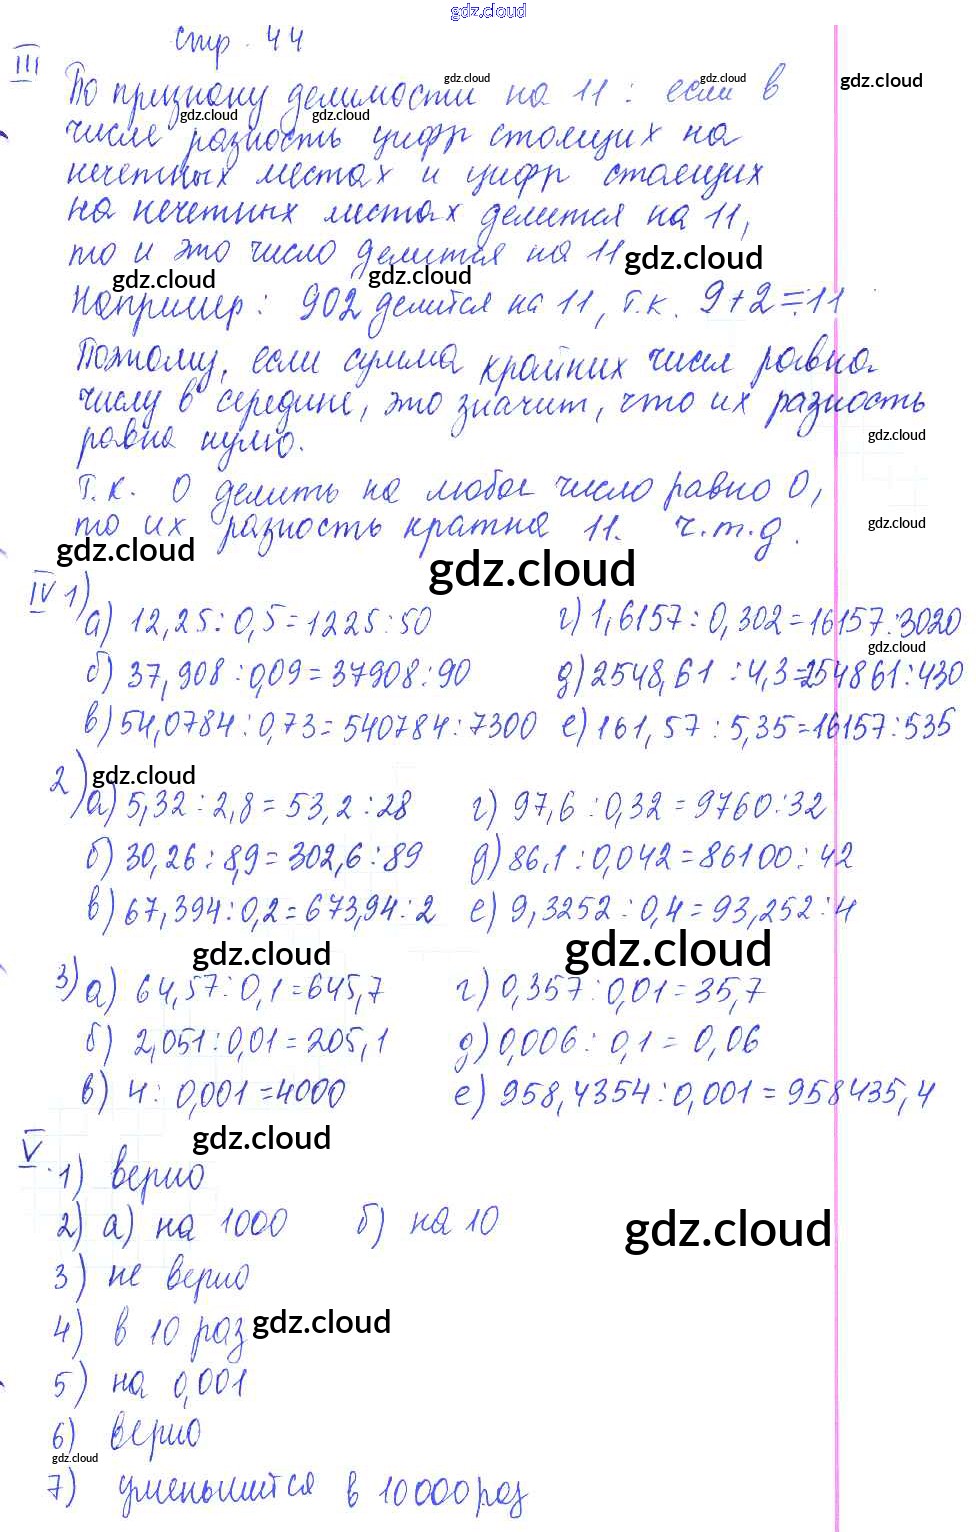 gdz.cloud
стр. 44
III
По признаку делимости на 11: если в
числе разность цифр стоящих на
нечетных местах и цифр стоящих
на нечетных местах делится на 11,
то и это число делится на 11
gdz.cloud
Например: 902 делится на 11, т.к. 9+2=11
Поэтому, если сумма крайних чисел равна
числу в середине, это значит, что их разность
равна нулю.
Т.к. 0 делить на любое число равно 0,
то их разность кратна 11. ч.т.д.
gdz.cloud
IV 1)
а) 12,25:0,5=1225:50 г) 1,6157:0,302=16157:3020
б) 37,908:0,09=37908:90 д) 2548,61:4,3=254861:430
в) 54,0784:0,73=540784:7300 е) 161,57:5,35=16157:535
2) gdz.cloud
а) 5,32:2,8=53,2:28 г) 97,6:0,32=9760:32
б) 30,26:8,9=302,6:89 д) 86,1:0,042=86100:42
в) 67,394:0,2=673,94:2 е) 9,3252:0,4=93,252:4
gdz.cloud gdz.cloud
3) а) 64,57:0,1=645,7 г) 0,357:0,01=35,7
б) 2,051:0,01=205,1 д) 0,006:0,1=0,06
в) 4:0,001=4000 е) 958,4354:0,001=958435,4
gdz.cloud
V.
1) верно
2) а) на 1000 б) на 10
gdz.cloud
3) не верно
4) в 10 раз gdz.cloud
5) на 0,001
6) верно
gdz.cloud
7) уменьшится в 10000 раз